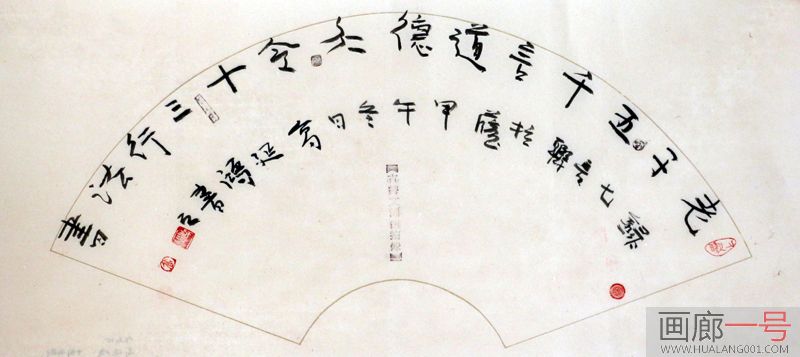 老子五千言道德大令十三行法書
錄七言聯於甲午冬日高延鴻書
画廊一号
WWW.HUALANG001.COM